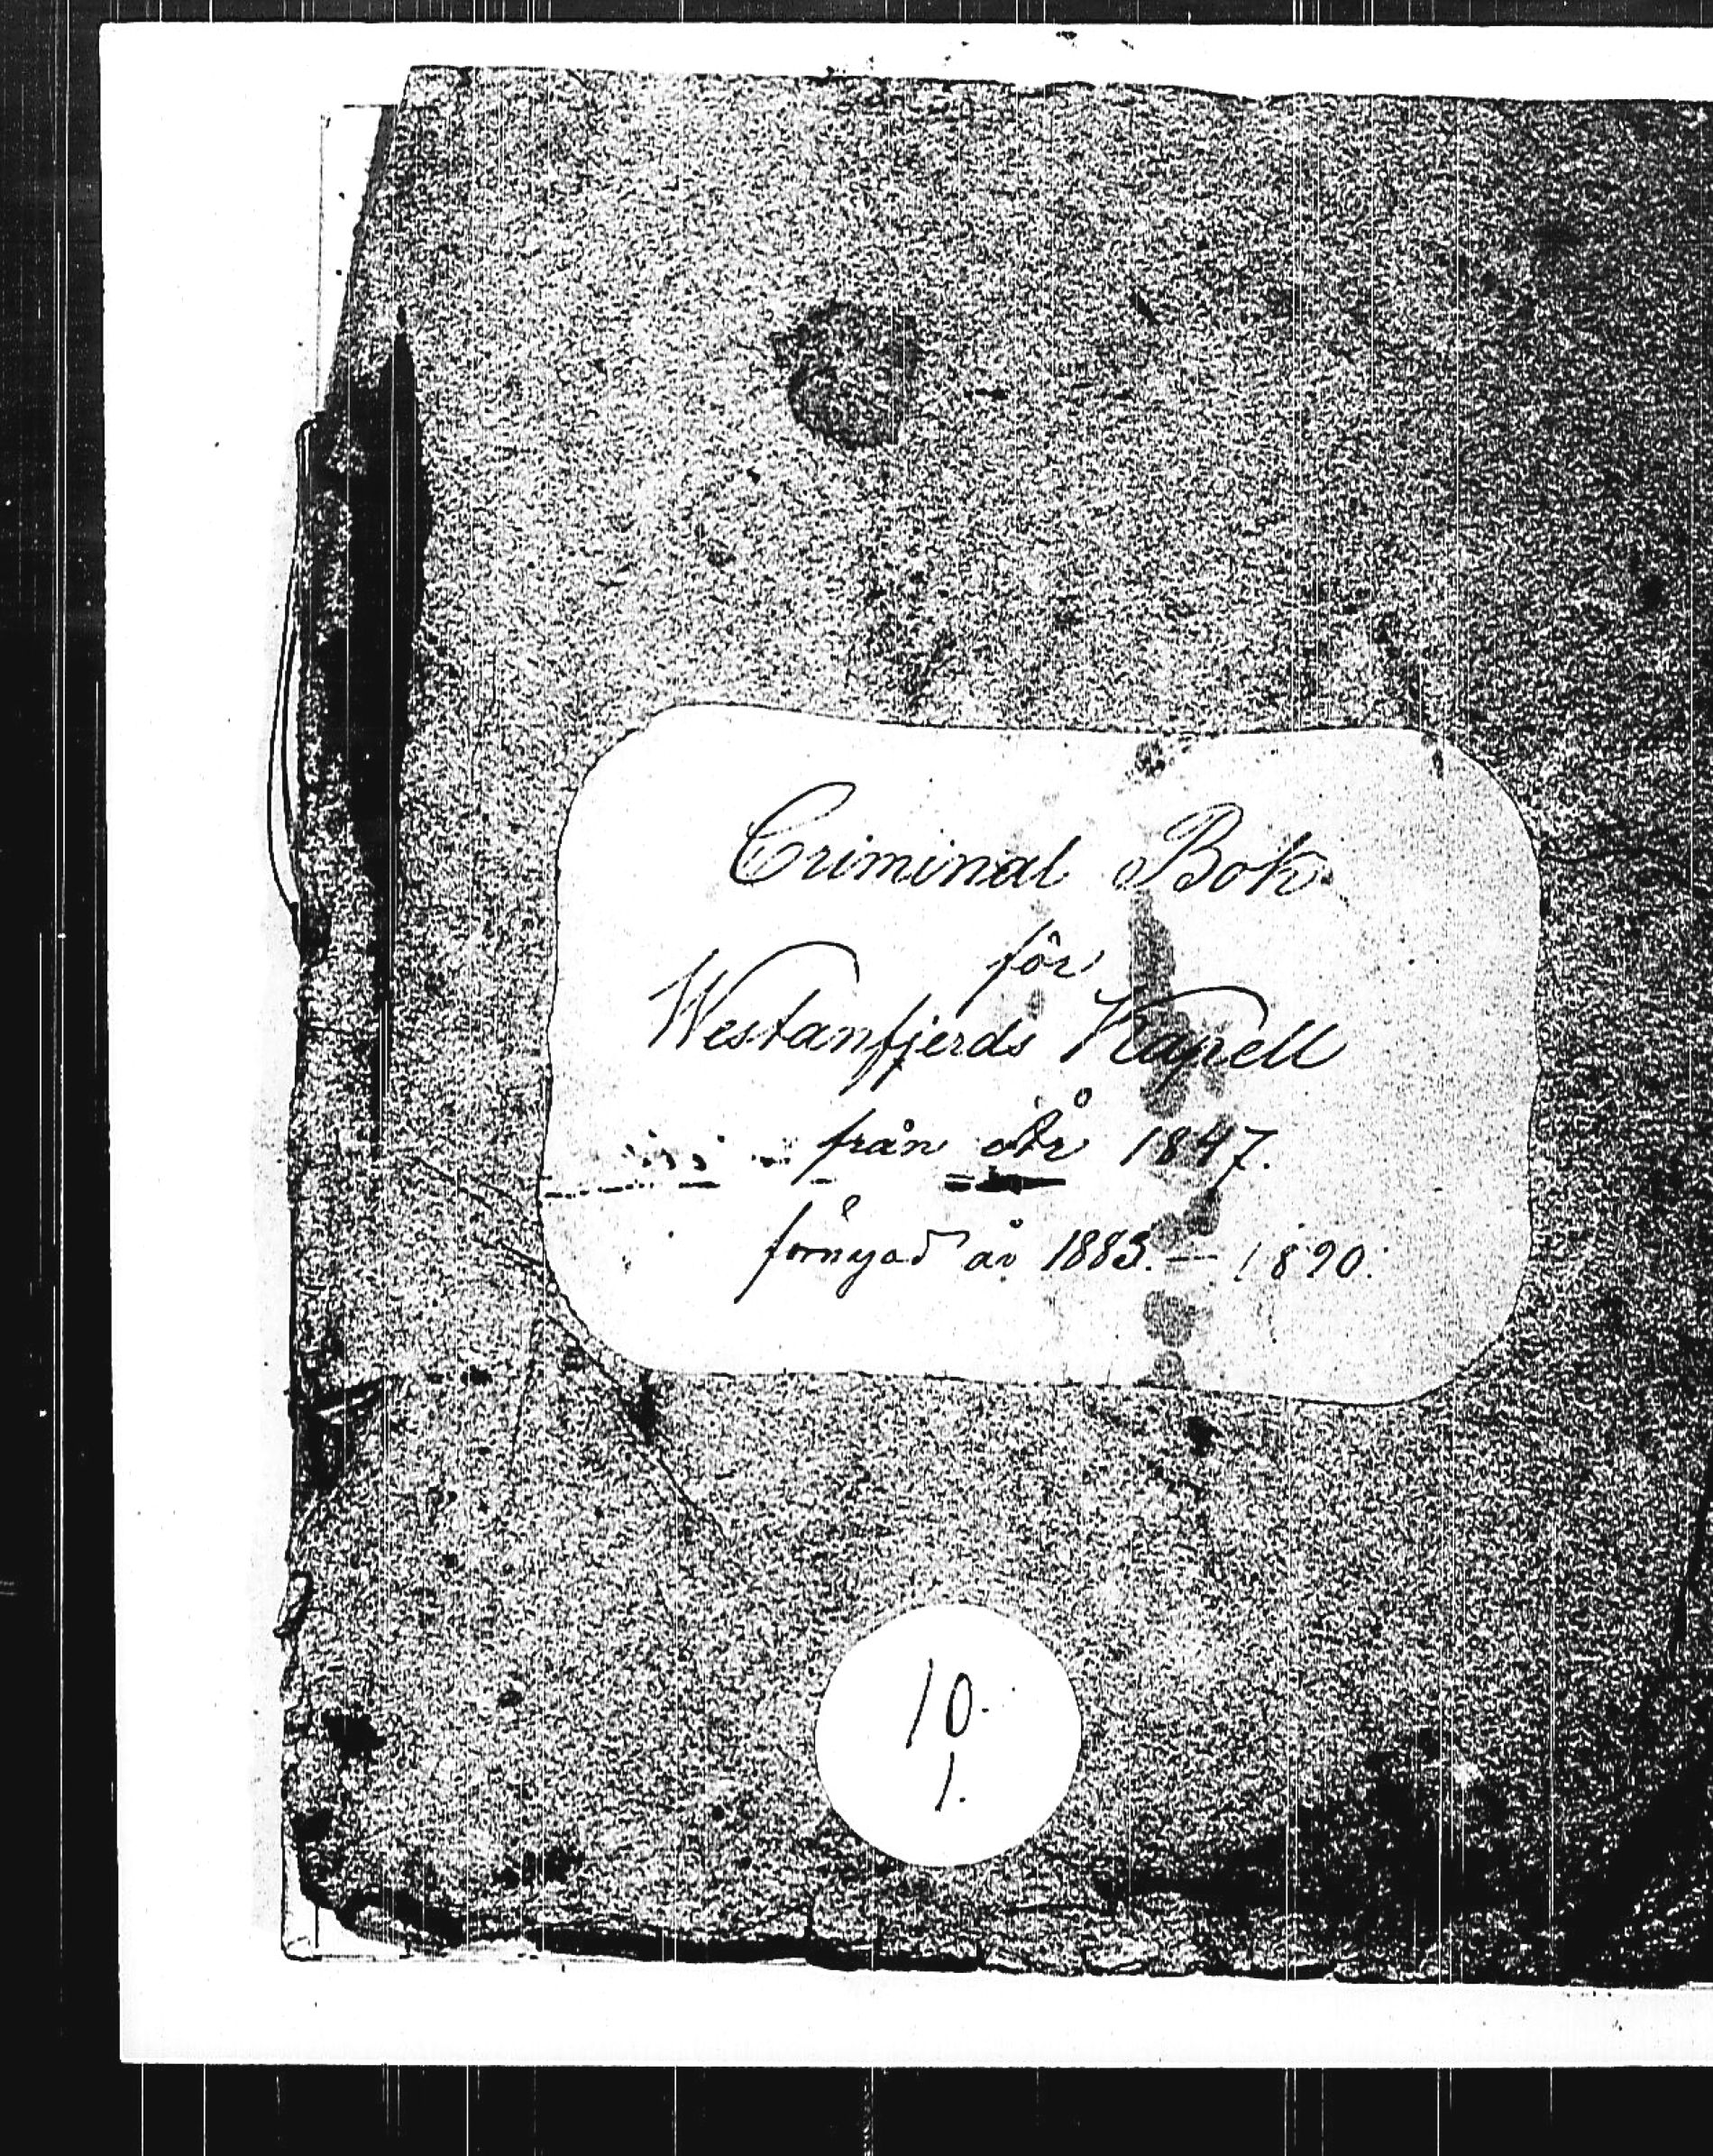 Criminal Bok
för
Westanfjerds Kapell
från år 1847.
förnyad år 1883. — 1890.
10.
1.